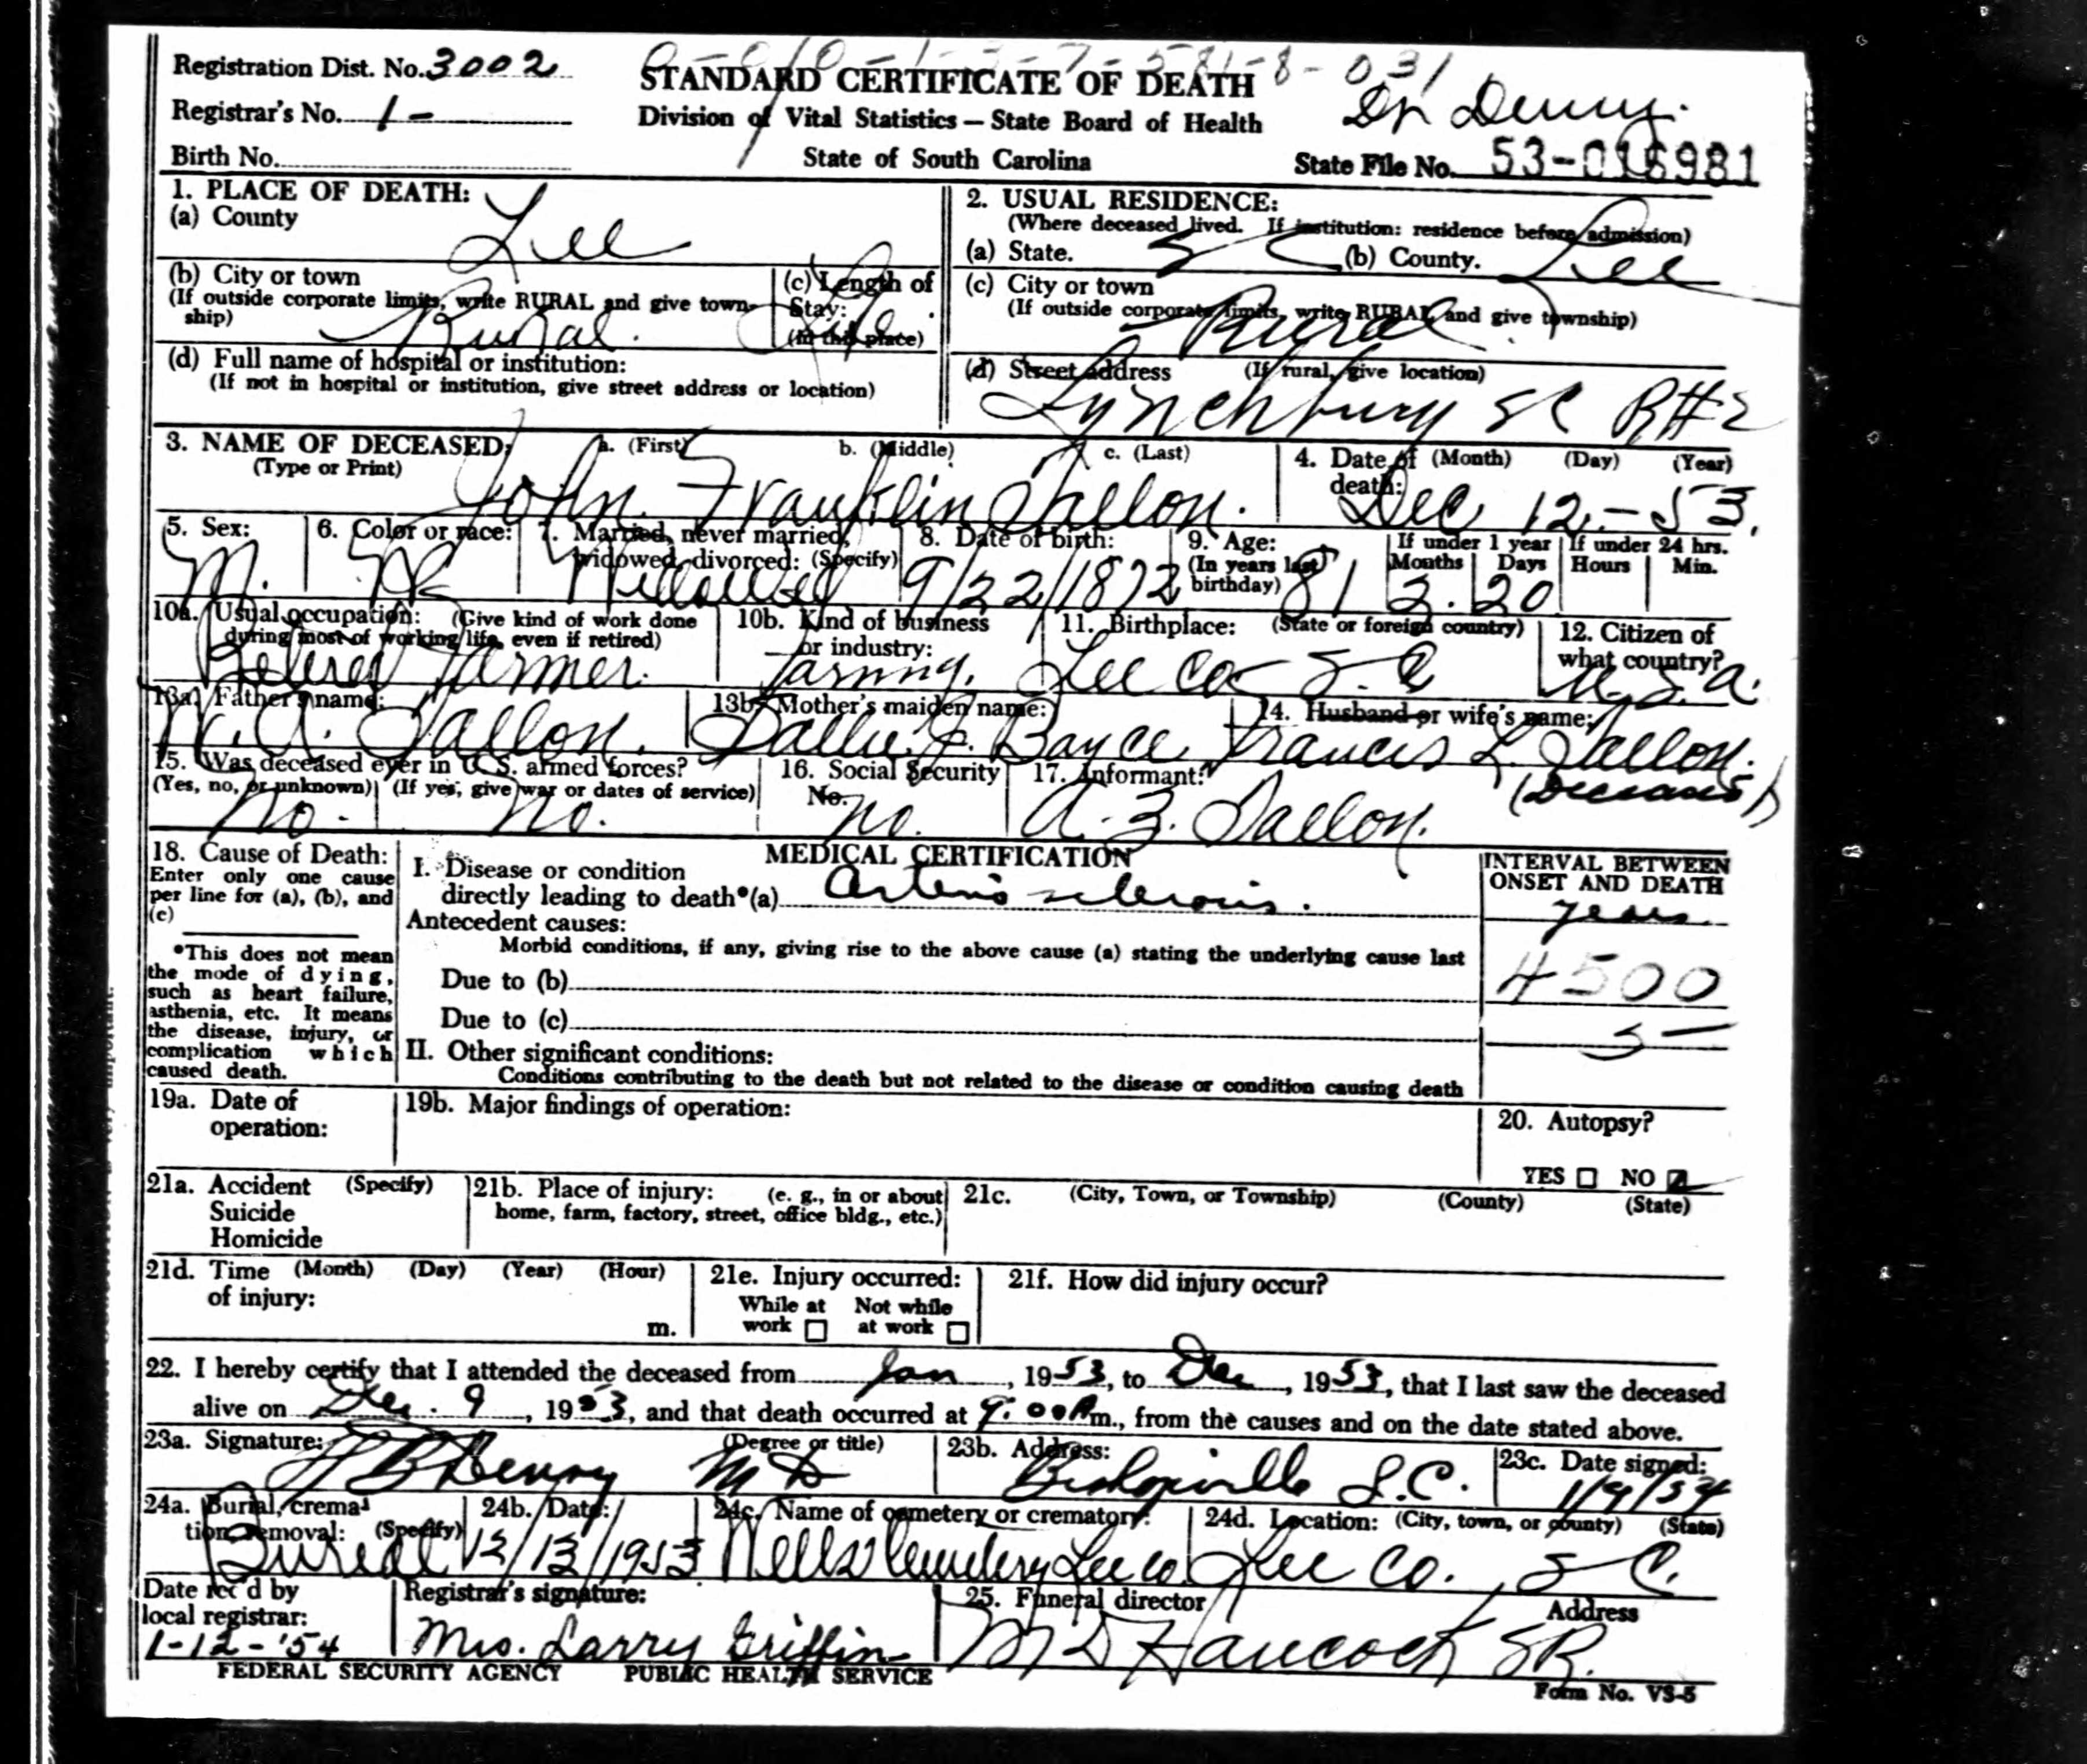 Registration Dist. No. 3002
STANDARD CERTIFICATE OF DEATH
Dr Denny.
Registrar's No. 1-
Division of Vital Statistics — State Board of Health
Birth No.
State of South Carolina
State File No. 53-016981
1. PLACE OF DEATH:
(a) County Lee
2. USUAL RESIDENCE:
(Where deceased lived. If institution: residence before admission)
(a) State. S C (b) County. Lee
(b) City or town
(If outside corporate limits, write RURAL and give township)
Rural.
(c) Length of Stay: (In this place)
Life
(c) City or town
(If outside corporate limits, write RURAL and give township)
Rural
(d) Full name of hospital or institution:
(If not in hospital or institution, give street address or location)
(d) Street address (If rural, give location)
Lynchburg SC R#2
3. NAME OF DECEASED: a. (First) b. (Middle) c. (Last)
(Type or Print)
John Franklin
4. Date of death: (Month) (Day) (Year)
Dec 12.-53.
5. Sex: M.
6. Color or race:
7. Married, never married, widowed, divorced: (Specify)
Widowed
8. Date of birth:
9/22/1872
9. Age: (In years last birthday) 81
If under 1 year Months Days
2. 20
If under 24 hrs. Hours Min.
10a. Usual occupation: (Give kind of work done during most of working life, even if retired)
Retired Farmer.
10b. Kind of business or industry:
Farming.
11. Birthplace: (State or foreign country)
Lee Co S.C
12. Citizen of what country?
U.S.A.
13a. Father's name:
W. A.
13b. Mother's maiden name:
Sallie J. Bayce
14. Husband or wife's name:
Francis L.
(Deceased)
15. Was deceased ever in U. S. armed forces?
(Yes, no, or unknown) (If yes, give war or dates of service)
No. No.
16. Social Security No.
no.
17. Informant:
A. Z.
18. Cause of Death:
Enter only one cause
per line for (a), (b), and
(c)
*This does not mean
the mode of dying,
such as heart failure,
asthenia, etc. It means
the disease, injury, or
complication which
caused death.
MEDICAL CERTIFICATION
I. Disease or condition
directly leading to death*(a) Arterio sclerosis.
Antecedent causes:
Morbid conditions, if any, giving rise to the above cause (a) stating the underlying cause last
Due to (b)
Due to (c)
II. Other significant conditions:
Conditions contributing to the death but not related to the disease or condition causing death
INTERVAL BETWEEN
ONSET AND DEATH
years
4500
5
19a. Date of operation:
19b. Major findings of operation:
20. Autopsy?
YES NO
21a. Accident (Specify)
Suicide
Homicide
21b. Place of injury: (e. g., in or about
home, farm, factory, street, office bldg., etc.)
21c. (City, Town, or Township) (County) (State)
21d. Time (Month) (Day) (Year) (Hour)
of injury:
m.
21e. Injury occurred:
While at work Not while at work
21f. How did injury occur?
22. I hereby certify that I attended the deceased from Jan, 1953, to Dec, 1953, that I last saw the deceased
alive on Dec. 9, 1953, and that death occurred at 9:00 A m., from the causes and on the date stated above.
23a. Signature: (Degree or title)
Denny MD
23b. Address:
Bishopville S.C.
23c. Date signed:
1/9/54
24a. Burial, cremation, removal: (Specify)
Burial
24b. Date:
12/13/1953
24c. Name of cemetery or crematory:
Wells Cemetery Lee Co
24d. Location: (City, town, or county) (State)
Lee Co. S C.
Date rec'd by
local registrar:
1-12-'54
Registrar's signature:
Mrs. Larry Griffin
25. Funeral director Address
M D Hancock SR.
FEDERAL SECURITY AGENCY PUBLIC HEALTH SERVICE
Form No. VS-5